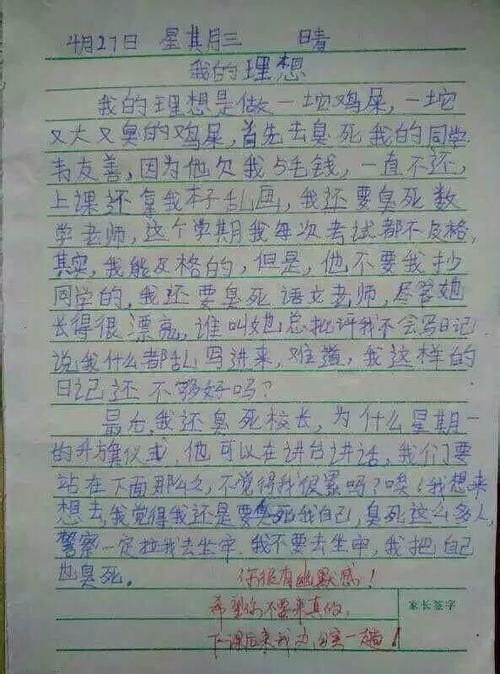 4月27日 星其月三 晴
我的理想
我的理想是做一坨鸡屎，一坨
又大又臭的鸡屎，首先去臭死我的同学
韦友善，因为他欠我5毛钱，一直不还，
上课还拿我本子乱画，我还要臭死数
学老师，这个学期我每次考试都不及格，
其实，我能及格的，但是，他不要我抄
同学的，我还要臭死语文老师，尽管她
长得很漂亮，谁叫她总批评我不会写日记
说我什么都乱写进来，难道，我这样的
日记还不够好吗？
最后，我还臭死校长，为什么星期一
的升旗仪式，他可以在讲台讲话，我们要
站在下面那么久，不觉得我很累吗？唉！我想来
想去，我觉得我还是要臭死我自己，臭死这么多人，
警察一定拉我去坐牢，我不要去坐牢，我把自己
也臭死。
你很有幽默感！
希望你不要来真的。
家长签字
下课后来我办公室一趟！